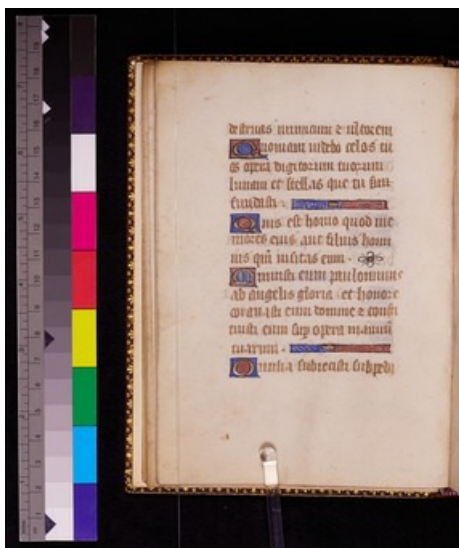 destruas inimicum ⁊ ultorem
Quoniam uidebo celos tu
os opera digitorum tuorum
lunam et stellas que tu fun
dasti
Quis est homo quod me
mores eius aut filius homi
nis qm uisitas eum
Minuisti eum paulominus
ab angelis gloria et honore
coronasti eum domine ⁊ consti
tuisti eum sup opera manuum
tuarum
Omnia subiecisti subpedi